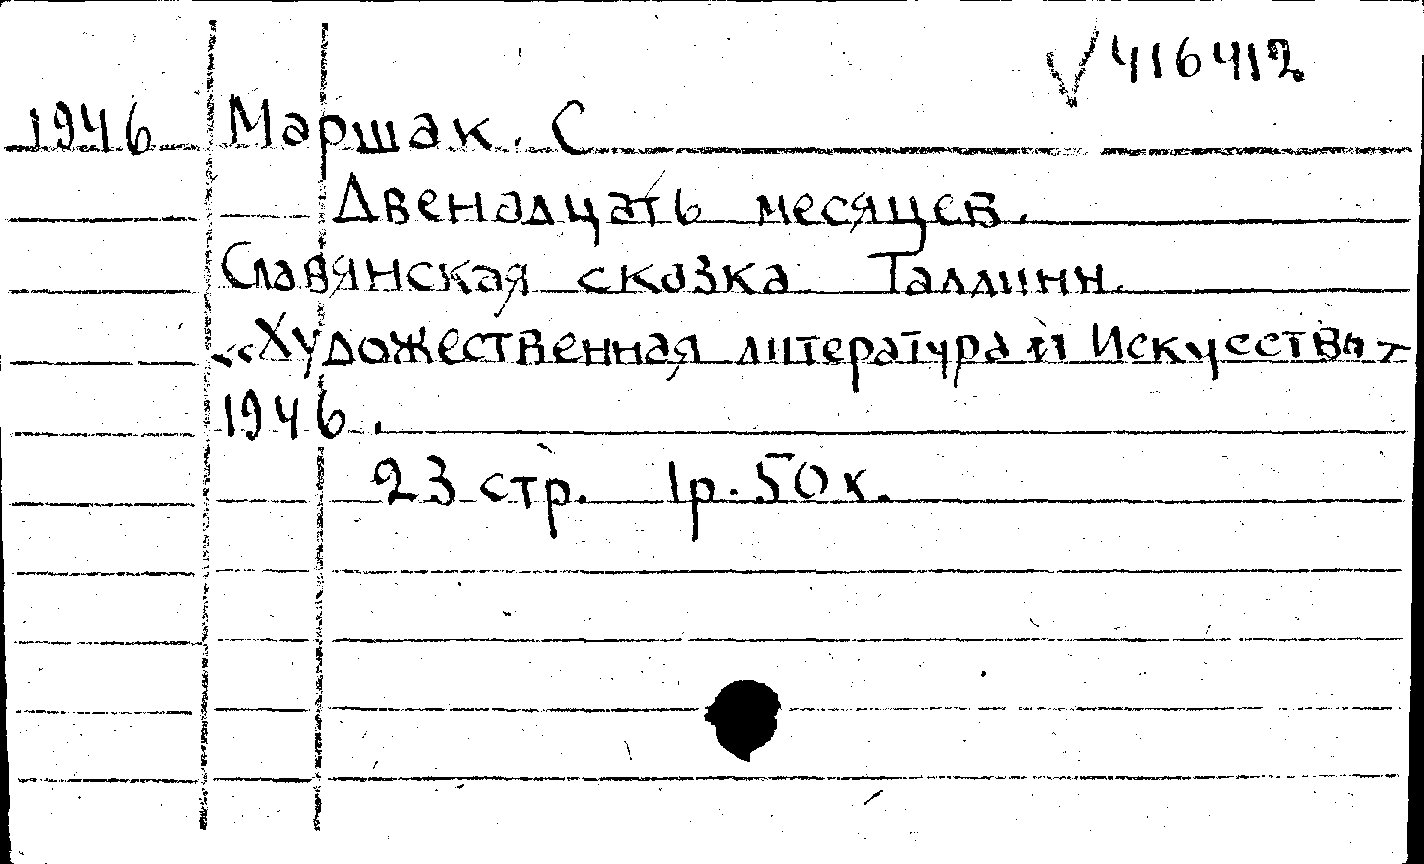 √ 416412
1946 Маршак. С
Двенадцать месяцев.
Славянская сказка. Таллинн.
«Художественная литература и Искусство»
1946.
23 стр. 1р. 50 к.